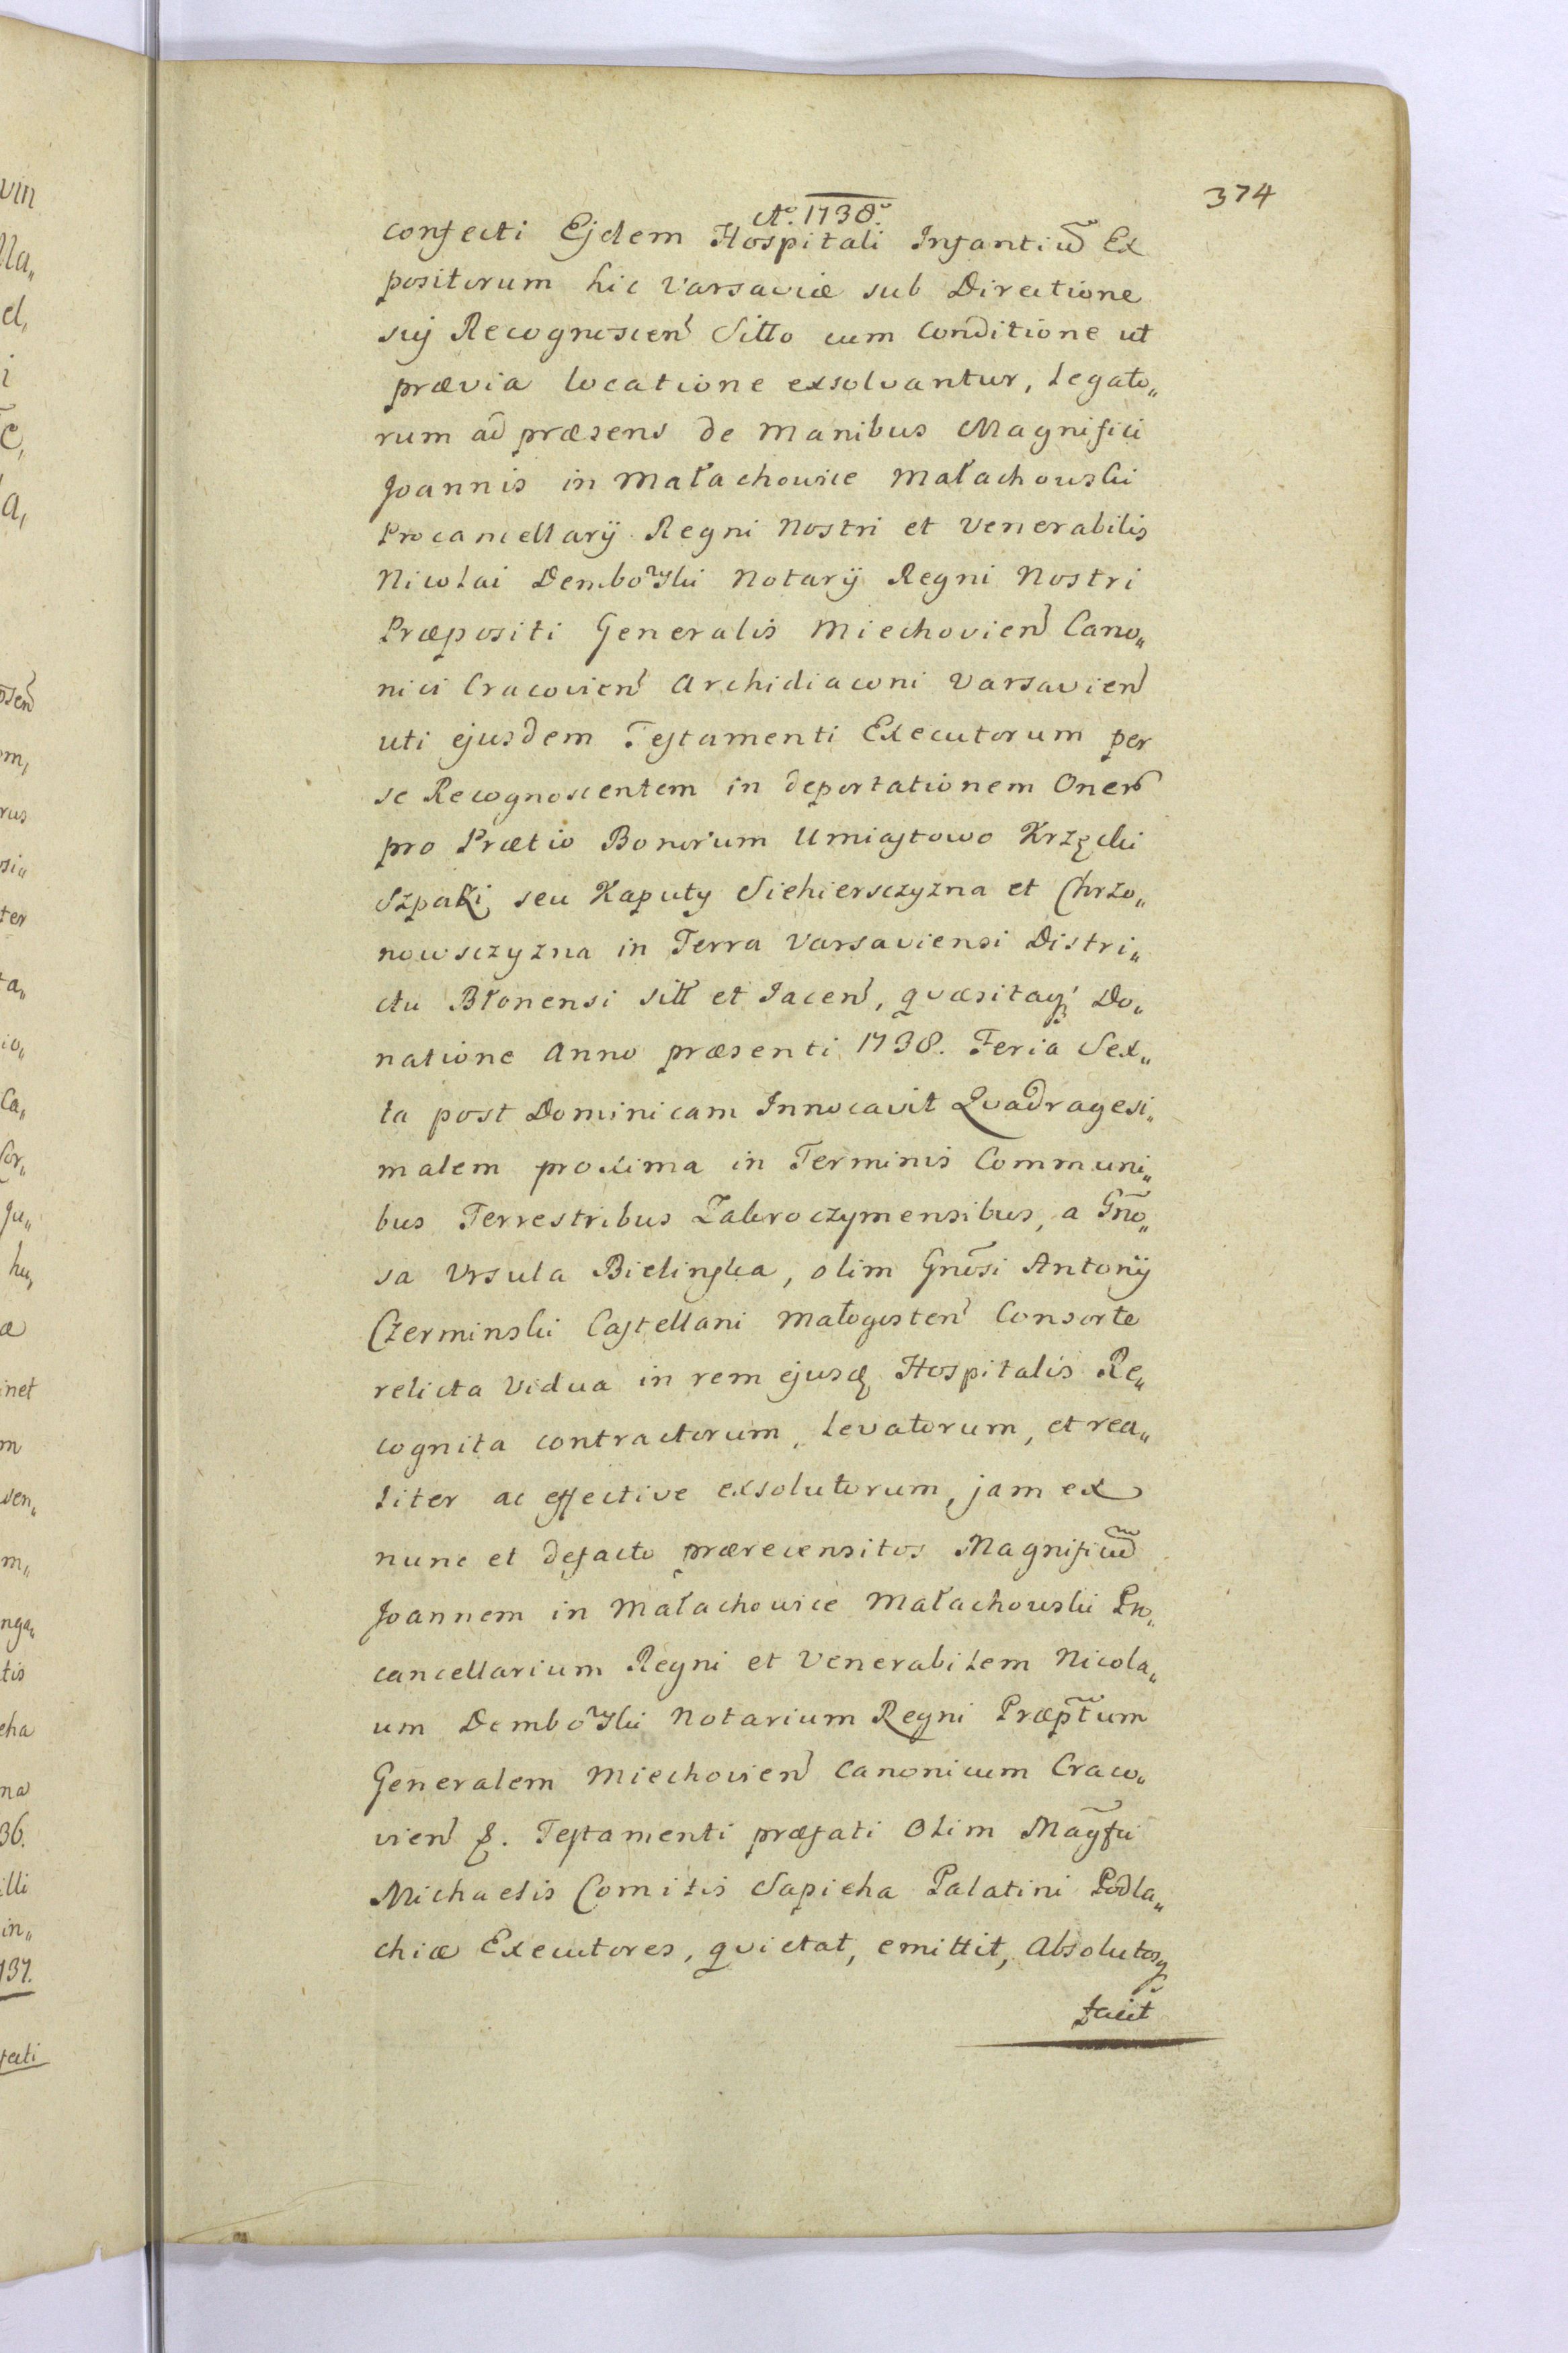 374
Aō. 1738ō.
confecti Ejdem Hospitali Infantiū Ex
positorum hic Varsaviæ sub Directione
sui Recognoscen̄ Sitto cum Conditione ut
prævia locatione exsolvantur, Legato„
rum ad præsens de Manibus Magnifici
Joannis in Małachowice Małachowski
Procancellarij Regni Nostri et Venerabilis
Nicolai Dembowski Notarij Regni Nostri
Præpositi Generalis Miechovien̄ Cano„
nici Cracovien̄ Archidiaconi Varsavien̄
uti ejusdem Testamenti Executorum per
se Recognoscentem in deportationem Oner̄
pro Prætio Bonorum Umiastowo Krzęcki
Szpaki seu Kaputy Siehiersczyzna et Chrzo„
nowsczyzna in Terra Varsaviensi Distri„
ctu Błonensi Sitt et Jacen̄, quæsitaq́ Do„
natione Anno præsenti 1738. Feria Sex„
ta post Dominicam Innocavit Quadragesi„
malem proxima in Terminis Communi„
bus Terrestribus Zakroczymensibus, a Gn̄o„
sa Ursula Bielinska, olim Gn̄osi Antonij
Czerminski Castellani Małogosten̄ Consorte
relicta Vidua in rem ejusq Hospitalis Re„
cognita contractorum, Levatorum, et rea„
liter ac effective exsolutorum, jam ex
nunc et defacto prærecensitos Magnificū
Joannem in Małachowice Małachowski Pro„
cancellarium Regni et Venerabilem Nicola„
um Dembowski Notarium Regni Præp̄tum
Generalem Miechovien̄ Canonicum Craco„
vien̄ &. Testamenti præfati Olim Mag̃fci
Michaelis Comitis Sapieha Palatini Podla„
chiæ Executores, quietat, emittit, Absolutosq
facit